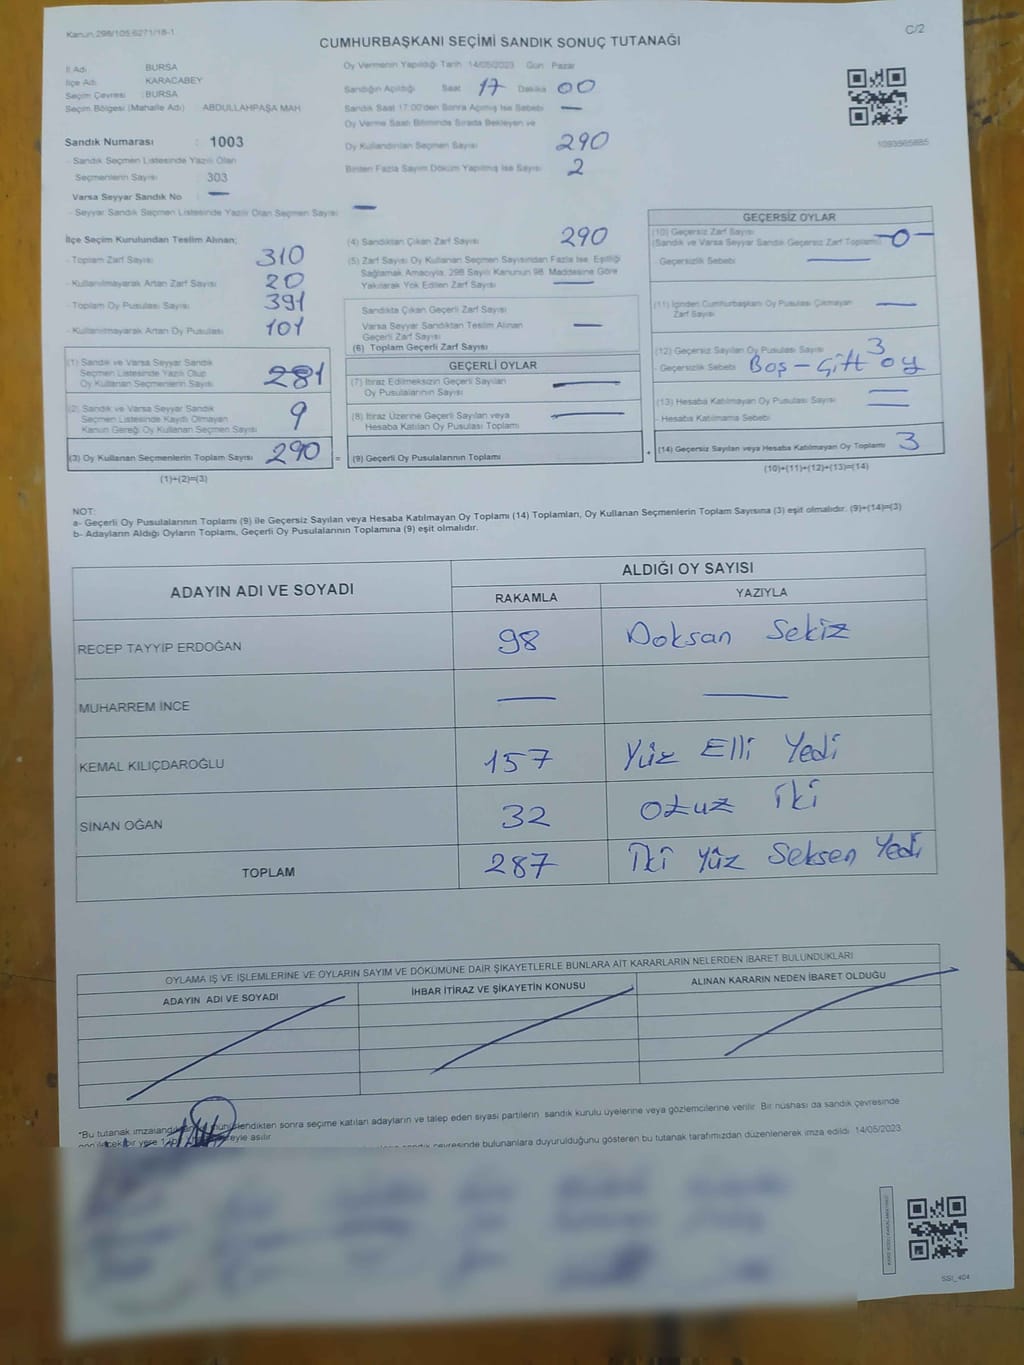 Kanun 298/105,6271/18-1
C/2
CUMHURBAŞKANI SEÇİMİ SANDIK SONUÇ TUTANAĞI
İl Adı : BURSA
İlçe Adı : KARACABEY
Seçim Çevresi : BURSA
Seçim Bölgesi (Mahalle Adı) : ABDULLAHPAŞA MAH
Sandık Numarası : 1003
- Sandık Seçmen Listesinde Yazılı Olan
Seçmenlerin Sayısı : 303
Varsa Seyyar Sandık No : —
- Seyyar Sandık Seçmen Listesinde Yazılı Olan Seçmen Sayısı : —
Oy Vermenin Yapıldığı Tarih 14/05/2023 Gün Pazar
Sandığın Açıldığı Saat 17 Dakika 00
Sandık Saat 17:00'den Sonra Açılmış İse Sebebi —
Oy Verme Saati Bitiminde Sırada Bekleyen ve
Oy Kullandırılan Seçmen Sayısı 290
Birden Fazla Sayım Döküm Yapılmış İse Sayısı 2
1093565885
İlçe Seçim Kurulundan Teslim Alınan;
- Toplam Zarf Sayısı : 310
- Kullanılmayarak Artan Zarf Sayısı : 20
- Toplam Oy Pusulası Sayısı : 391
- Kullanılmayarak Artan Oy Pusulası : 101
(1) Sandık ve Varsa Seyyar Sandık
Seçmen Listesinde Yazılı Olup
Oy Kullanan Seçmenlerin Sayısı 281
(2) Sandık ve Varsa Seyyar Sandık
Seçmen Listesinde Kayıtlı Olmayan
Kanun Gereği Oy Kullanan Seçmen Sayısı 9
(3) Oy Kullanan Seçmenlerin Toplam Sayısı 290 =
(1)+(2)=(3)
(4) Sandıktan Çıkan Zarf Sayısı 290
(5) Zarf Sayısı Oy Kullanan Seçmen Sayısından Fazla İse, Eşitliği
Sağlamak Amacıyla, 298 Sayılı Kanunun 98. Maddesine Göre
Yakılarak Yok Edilen Zarf Sayısı —
Sandıkta Çıkan Geçerli Zarf Sayısı
Varsa Seyyar Sandıktan Teslim Alınan
Geçerli Zarf Sayısı —
(6) Toplam Geçerli Zarf Sayısı
GEÇERLİ OYLAR
(7) İtiraz Edilmeksizin Geçerli Sayılan
Oy Pusulalarının Sayısı —
(8) İtiraz Üzerine Geçerli Sayılan veya
Hesaba Katılan Oy Pusulası Toplamı —
(9) Geçerli Oy Pusulalarının Toplamı +
GEÇERSİZ OYLAR
(10) Geçersiz Zarf Sayısı
(Sandık ve Varsa Seyyar Sandık Geçersiz Zarf Toplamı) -0-
- Geçersizlik Sebebi —
(11) İçinden Cumhurbaşkanı Oy Pusulası Çıkmayan
Zarf Sayısı —
(12) Geçersiz Sayılan Oy Pusulası Sayısı 3
- Geçersizlik Sebebi Boş - Çift oy
(13) Hesaba Katılmayan Oy Pusulası Sayısı —
- Hesaba Katılmama Sebebi —
(14) Geçersiz Sayılan veya Hesaba Katılmayan Oy Toplamı 3
(10)+(11)+(12)+(13)=(14)
NOT:
a- Geçerli Oy Pusulalarının Toplamı (9) ile Geçersiz Sayılan veya Hesaba Katılmayan Oy Toplamı (14) Toplamları, Oy Kullanan Seçmenlerin Toplam Sayısına (3) eşit olmalıdır. (9)+(14)=(3)
b- Adayların Aldığı Oyların Toplamı, Geçerli Oy Pusulalarının Toplamına (9) eşit olmalıdır.
ADAYIN ADI VE SOYADI
ALDIĞI OY SAYISI
RAKAMLA YAZIYLA
RECEP TAYYİP ERDOĞAN 98 Doksan Sekiz
MUHARREM İNCE — —
KEMAL KILIÇDAROĞLU 157 Yüz Elli Yedi
SİNAN OĞAN 32 Otuz iki
TOPLAM 287 İki Yüz Seksen Yedi
OYLAMA İŞ VE İŞLEMLERİNE VE OYLARIN SAYIM VE DÖKÜMÜNE DAİR ŞİKAYETLERLE BUNLARA AİT KARARLARIN NELERDEN İBARET BULUNDUKLARI
ADAYIN ADI VE SOYADI İHBAR İTİRAZ VE ŞİKAYETİN KONUSU ALINAN KARARIN NEDEN İBARET OLDUĞU
*Bu tutanak sonra seçime katılan adayların ve talep eden siyasi partilerin sandık kurulu üyelerine veya gözlemcilerine verilir. Bir nüshası da sandık çevresinde
yere asılır.
sandık çevresinde bulunanlara duyurulduğunu gösteren bu tutanak tarafımızdan düzenlenerek imza edildi. 14/05/2023
SSI_404